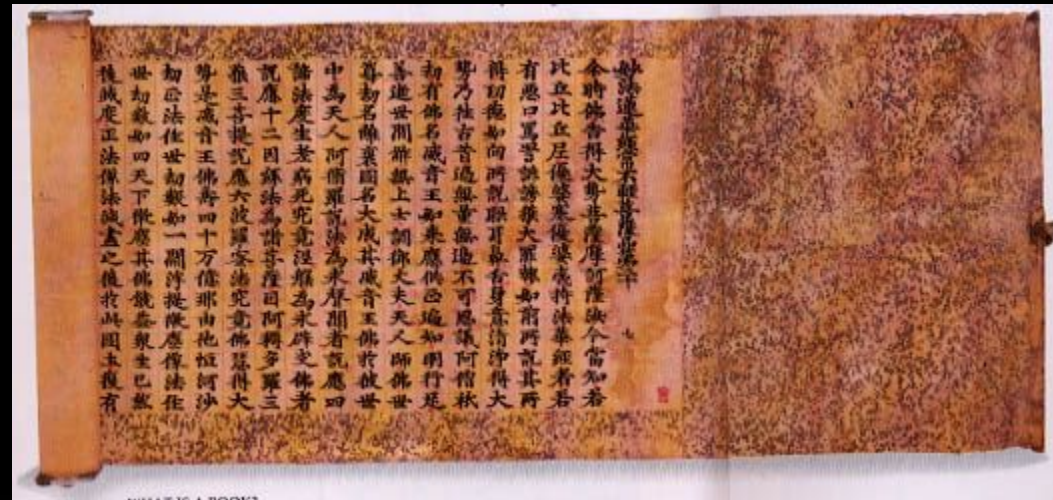 妙法蓮華經常不輕菩薩品第二十 七
尒時佛告得大勢菩薩摩訶薩汝今當知若
比丘比丘尼優婆塞優婆夷持法華經者若
有惡口罵詈誹謗獲大罪報如前所說其所
得功德如向所說眼耳鼻舌身意清淨得大
勢乃往古昔過無量無邊不可思議阿僧祇
劫有佛名威音王如來應供正遍知明行足
善逝世間解無上士調御丈夫天人師佛世
尊劫名離衰國名大成其威音王佛於彼世
中為天人阿修羅說法為求聲聞者說應四
諦法度生老病死究竟涅槃為求辟支佛者
說應十二因緣法為諸菩薩因阿耨多羅三
藐三菩提說應六波羅蜜法究竟佛慧得大
勢是威音王佛壽四十万億那由他恒河沙
劫正法住世劫數如一閻浮提微塵像法住
世劫數如四天下微塵其佛饒益眾生已然
後滅度正法像法滅盡之後於此國土復有
WHAT IS A BOOK?